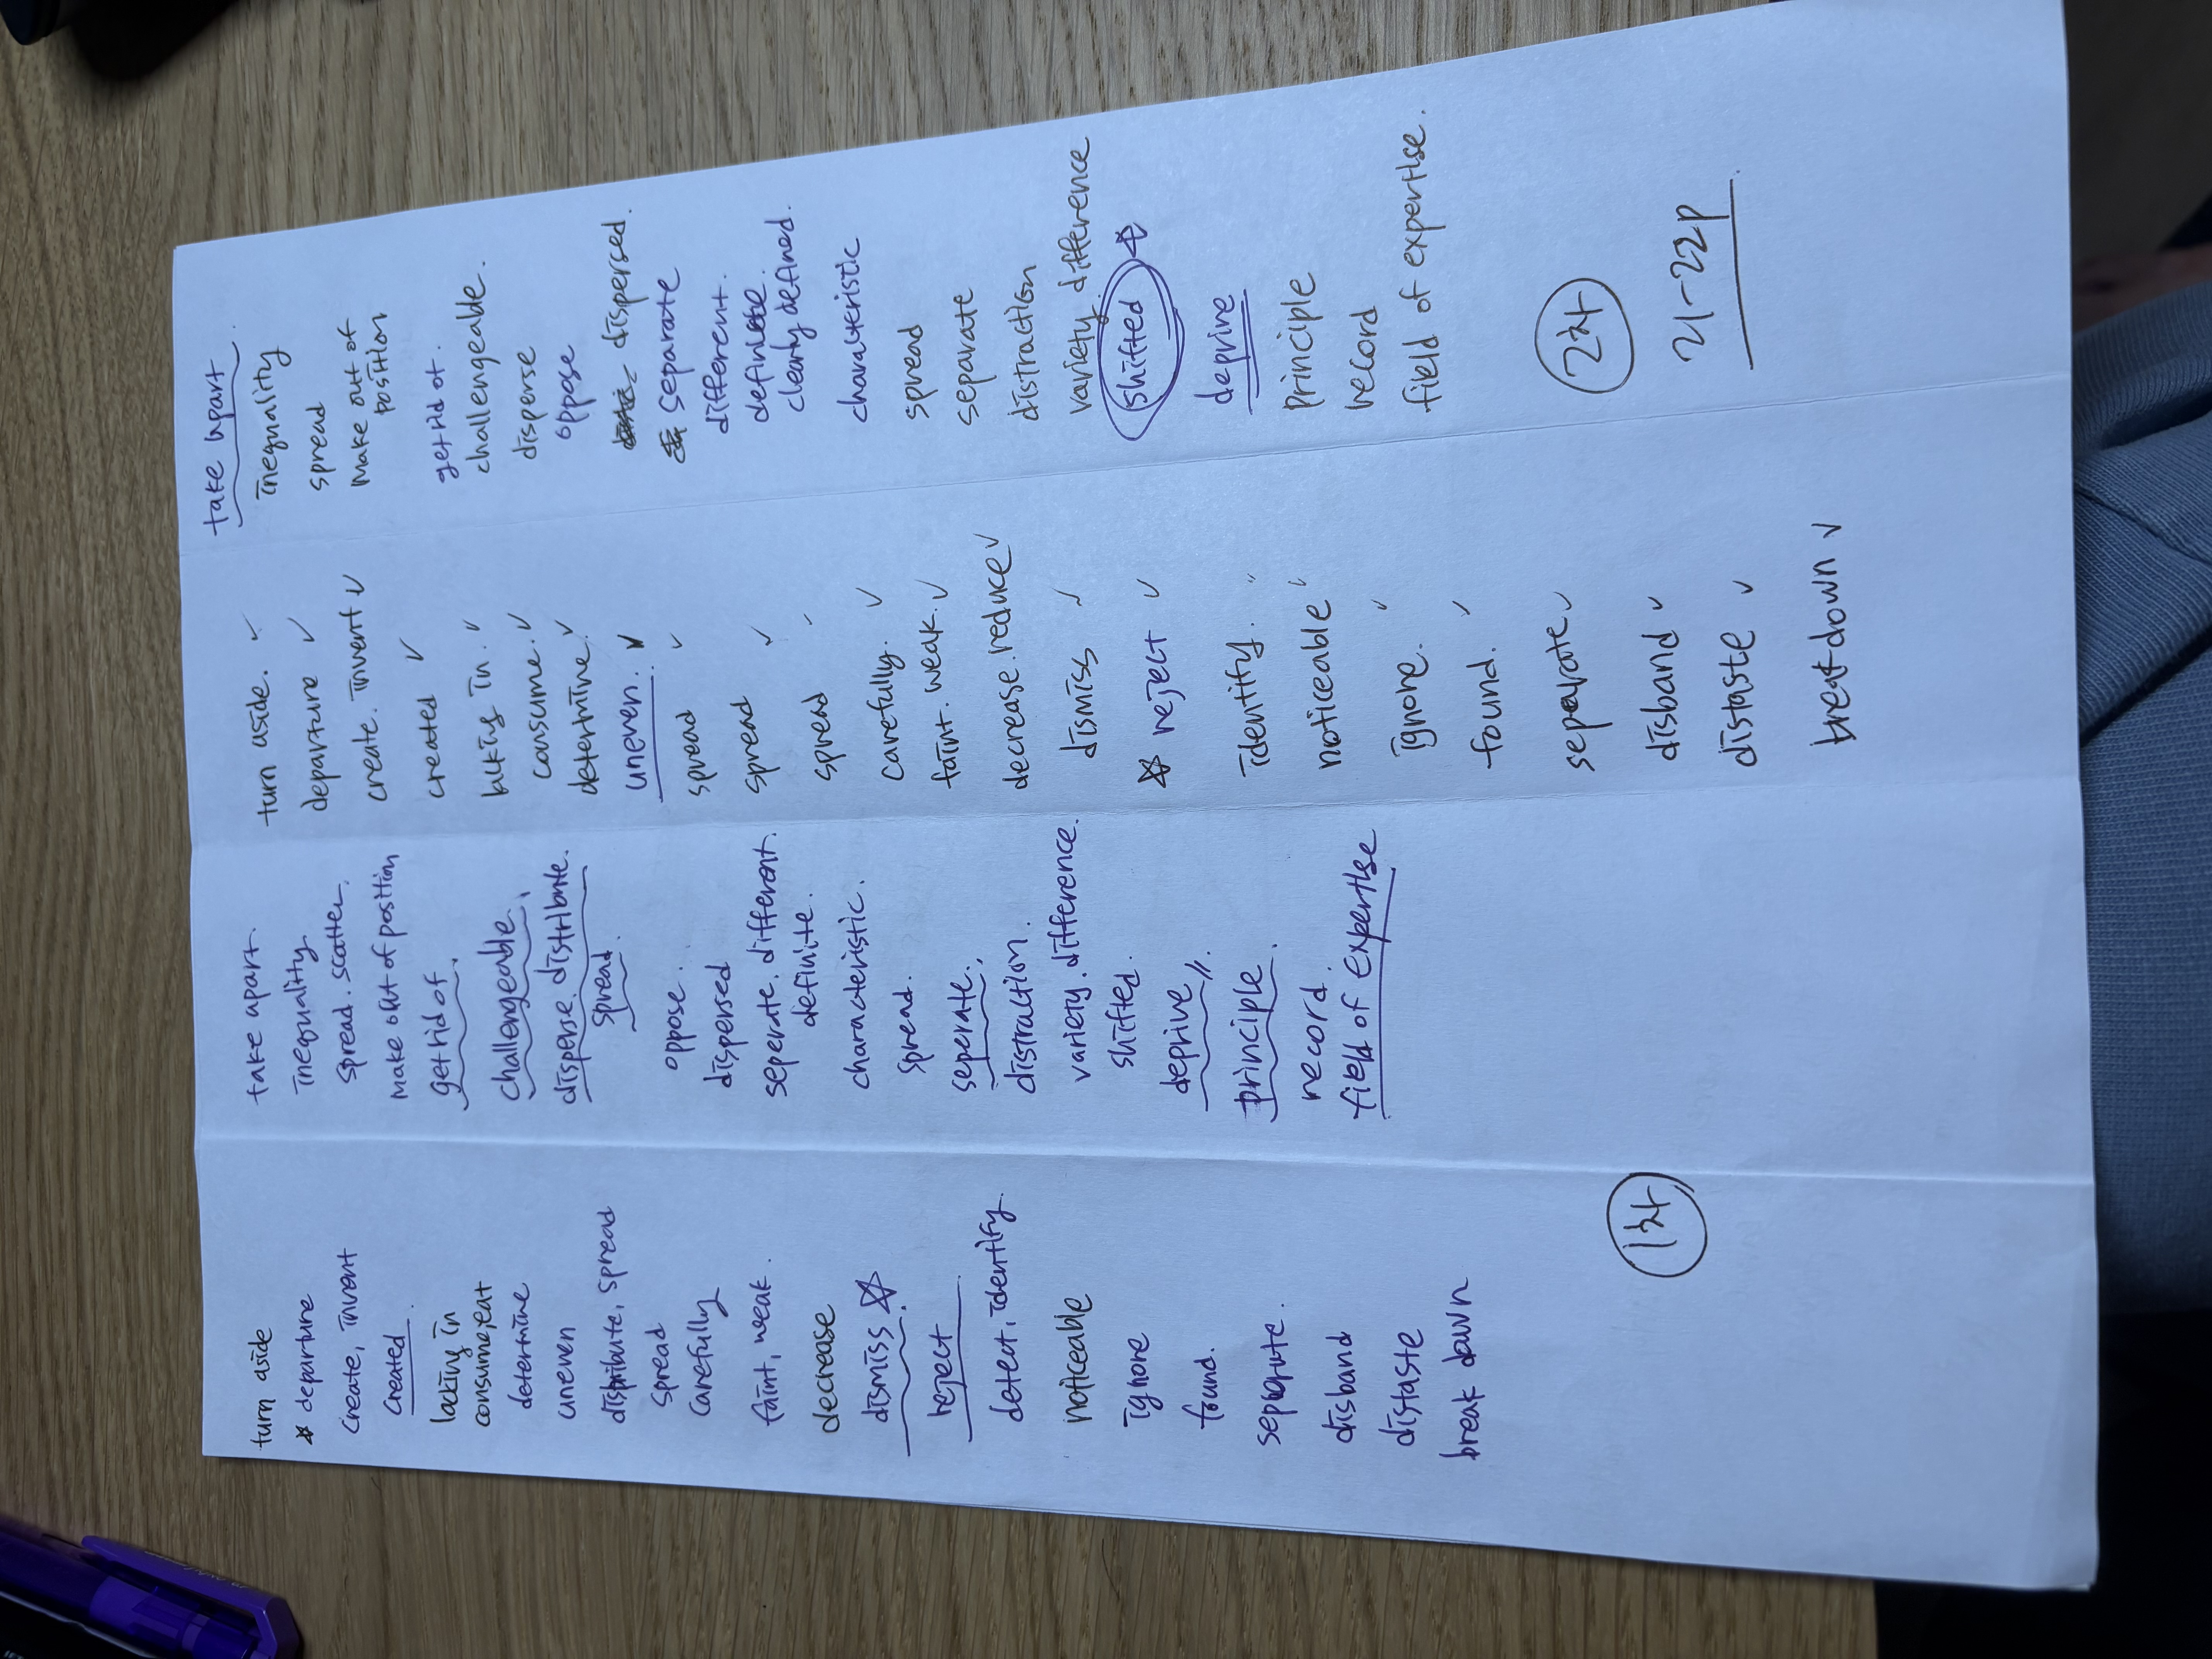 turn aside
☆ departure
create, invent
created
lacking in
consume, eat
determine
uneven
distribute, spread
spread
carefully
faint, weak.
decrease
dismiss. ☆
reject
detect, identify.
noticeable
ignore
found.
seperate.
disband
distaste
break down
1차
take apart.
inequality
spread. scatter.
make out of position
get rid of.
challengeable.
disperse. distribute.
spread.
oppose.
dispersed
seperate. different.
definite.
characteristic.
spread.
seperate.
distraction.
variety. difference.
shifted.
deprive
principle.
record.
field of expertise
turn aside. ✓
departure ✓
create. invent ✓
created ✓
lacking in. ✓
consume. ✓
determine. ✓
uneven. ✓
spread ✓
spread ✓
spread ✓
carefully. ✓
faint. weak. ✓
decrease. reduce ✓
dismiss ✓
☆ reject ✓
identify. ✓
noticeable ✓
ignore. ✓
found. ✓
separate. ✓
disband ✓
distaste ✓
break down ✓
take apart.
inequality
spread
make out of
position
get rid of.
challengeable.
disperse
oppose
dispersed.
separate
different.
definite.
clearly defined.
characteristic
spread
separate
distraction
variety. difference
shifted ☆
deprive
principle
record
field of expertise.
2차
21-22p